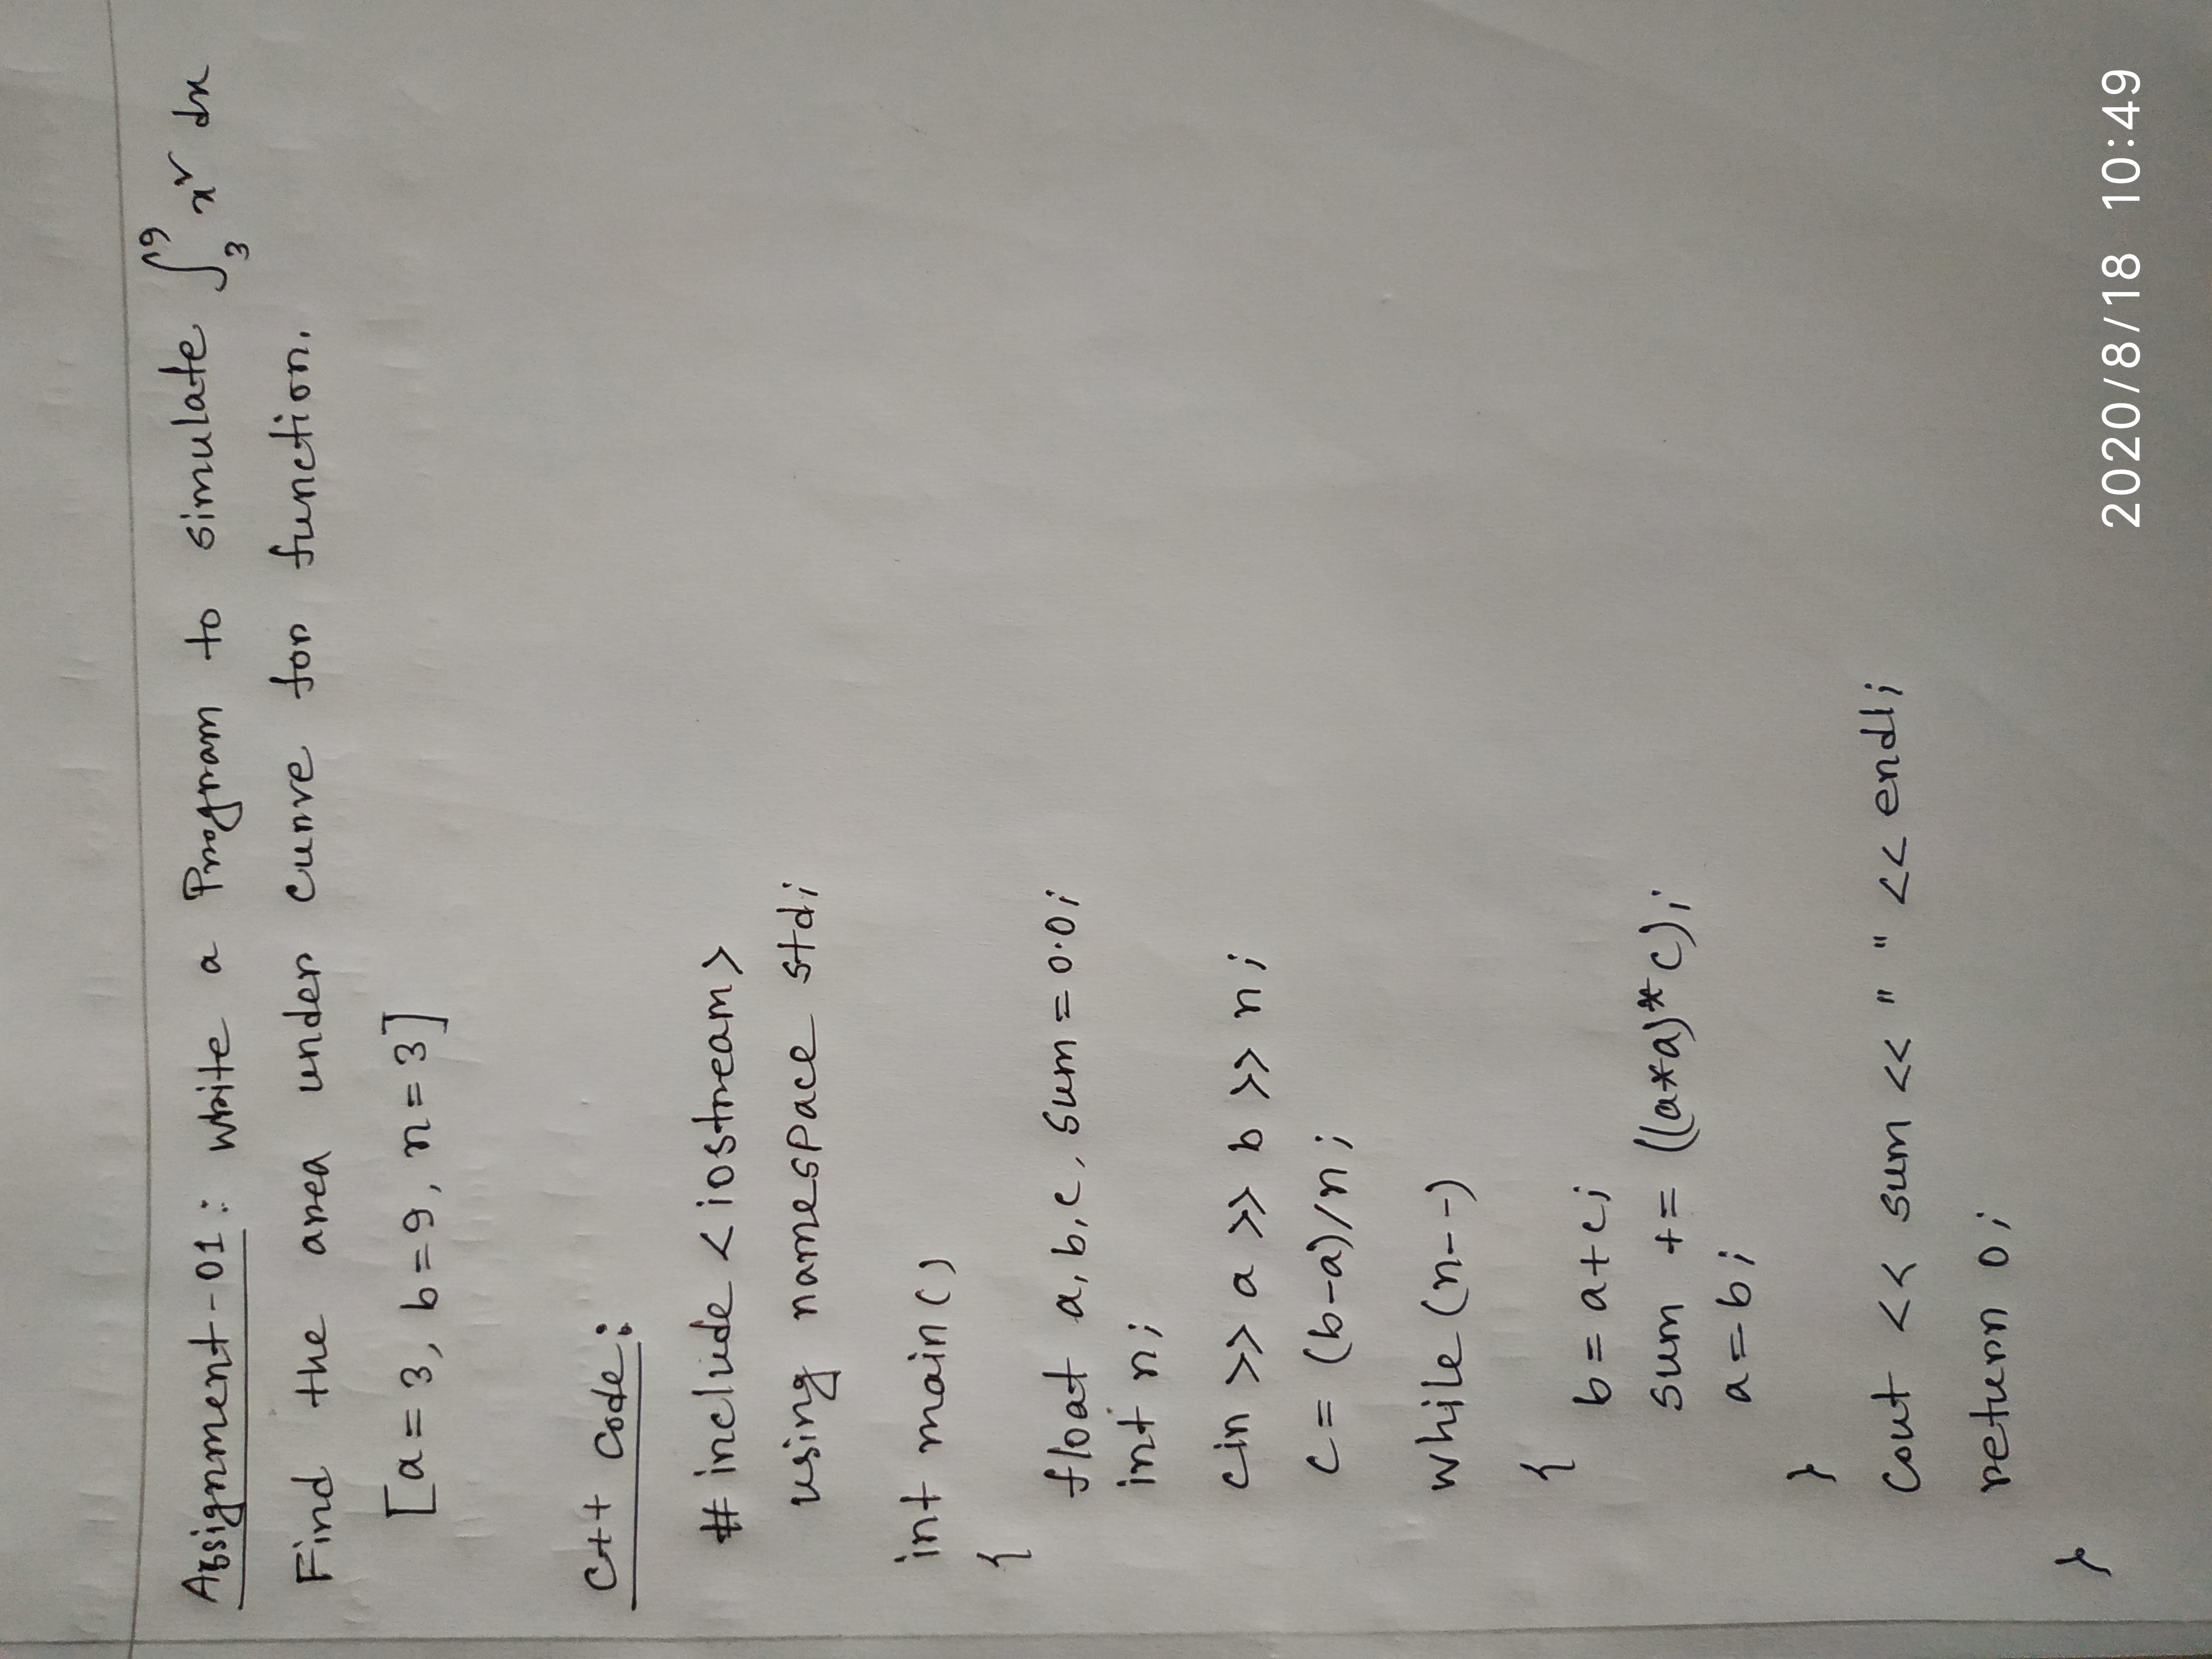 Assignment-01: Write a Program to simulate ∫₃⁹ x² dx
Find the area under curve for function.
[a=3, b=9, n=3]
C++ Code:
# include <iostream>
using namespace std;
int main()
{
float a, b, c, sum = 0.0;
int n;
cin >> a >> b >> n;
c = (b-a)/n;
while (n--)
{
b = a+c;
sum += ((a*a)*c);
a=b;
}
cout << sum << " " << endl;
return 0;
}
2020/8/18 10:49